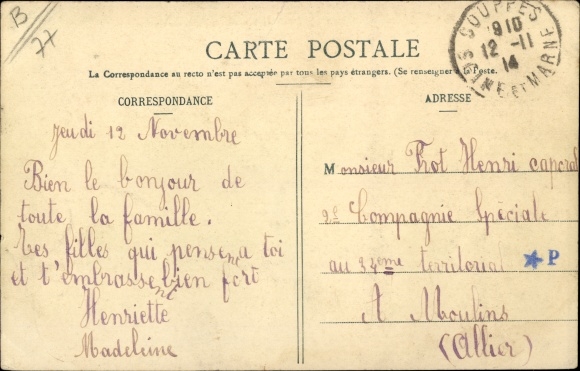 B
77
CARTE POSTALE
La Correspondance au recto n'est pas acceptée par tous les pays étrangers. (Se renseigner à la Poste.
SOUPPES
9 10
12 -11
14
SEINE ET MARNE
CORRESPONDANCE
Jeudi 12 Novembre
Bien le bonjour de
toute la famille.
Tes filles qui pensent a toi
et t'embrassent bien fort
Henriette
Madeleine
ADRESSE
Monsieur Frot Henri caporal
2e Compagnie Spéciale
au 34eme territorial
P
A Moulins
(Allier)